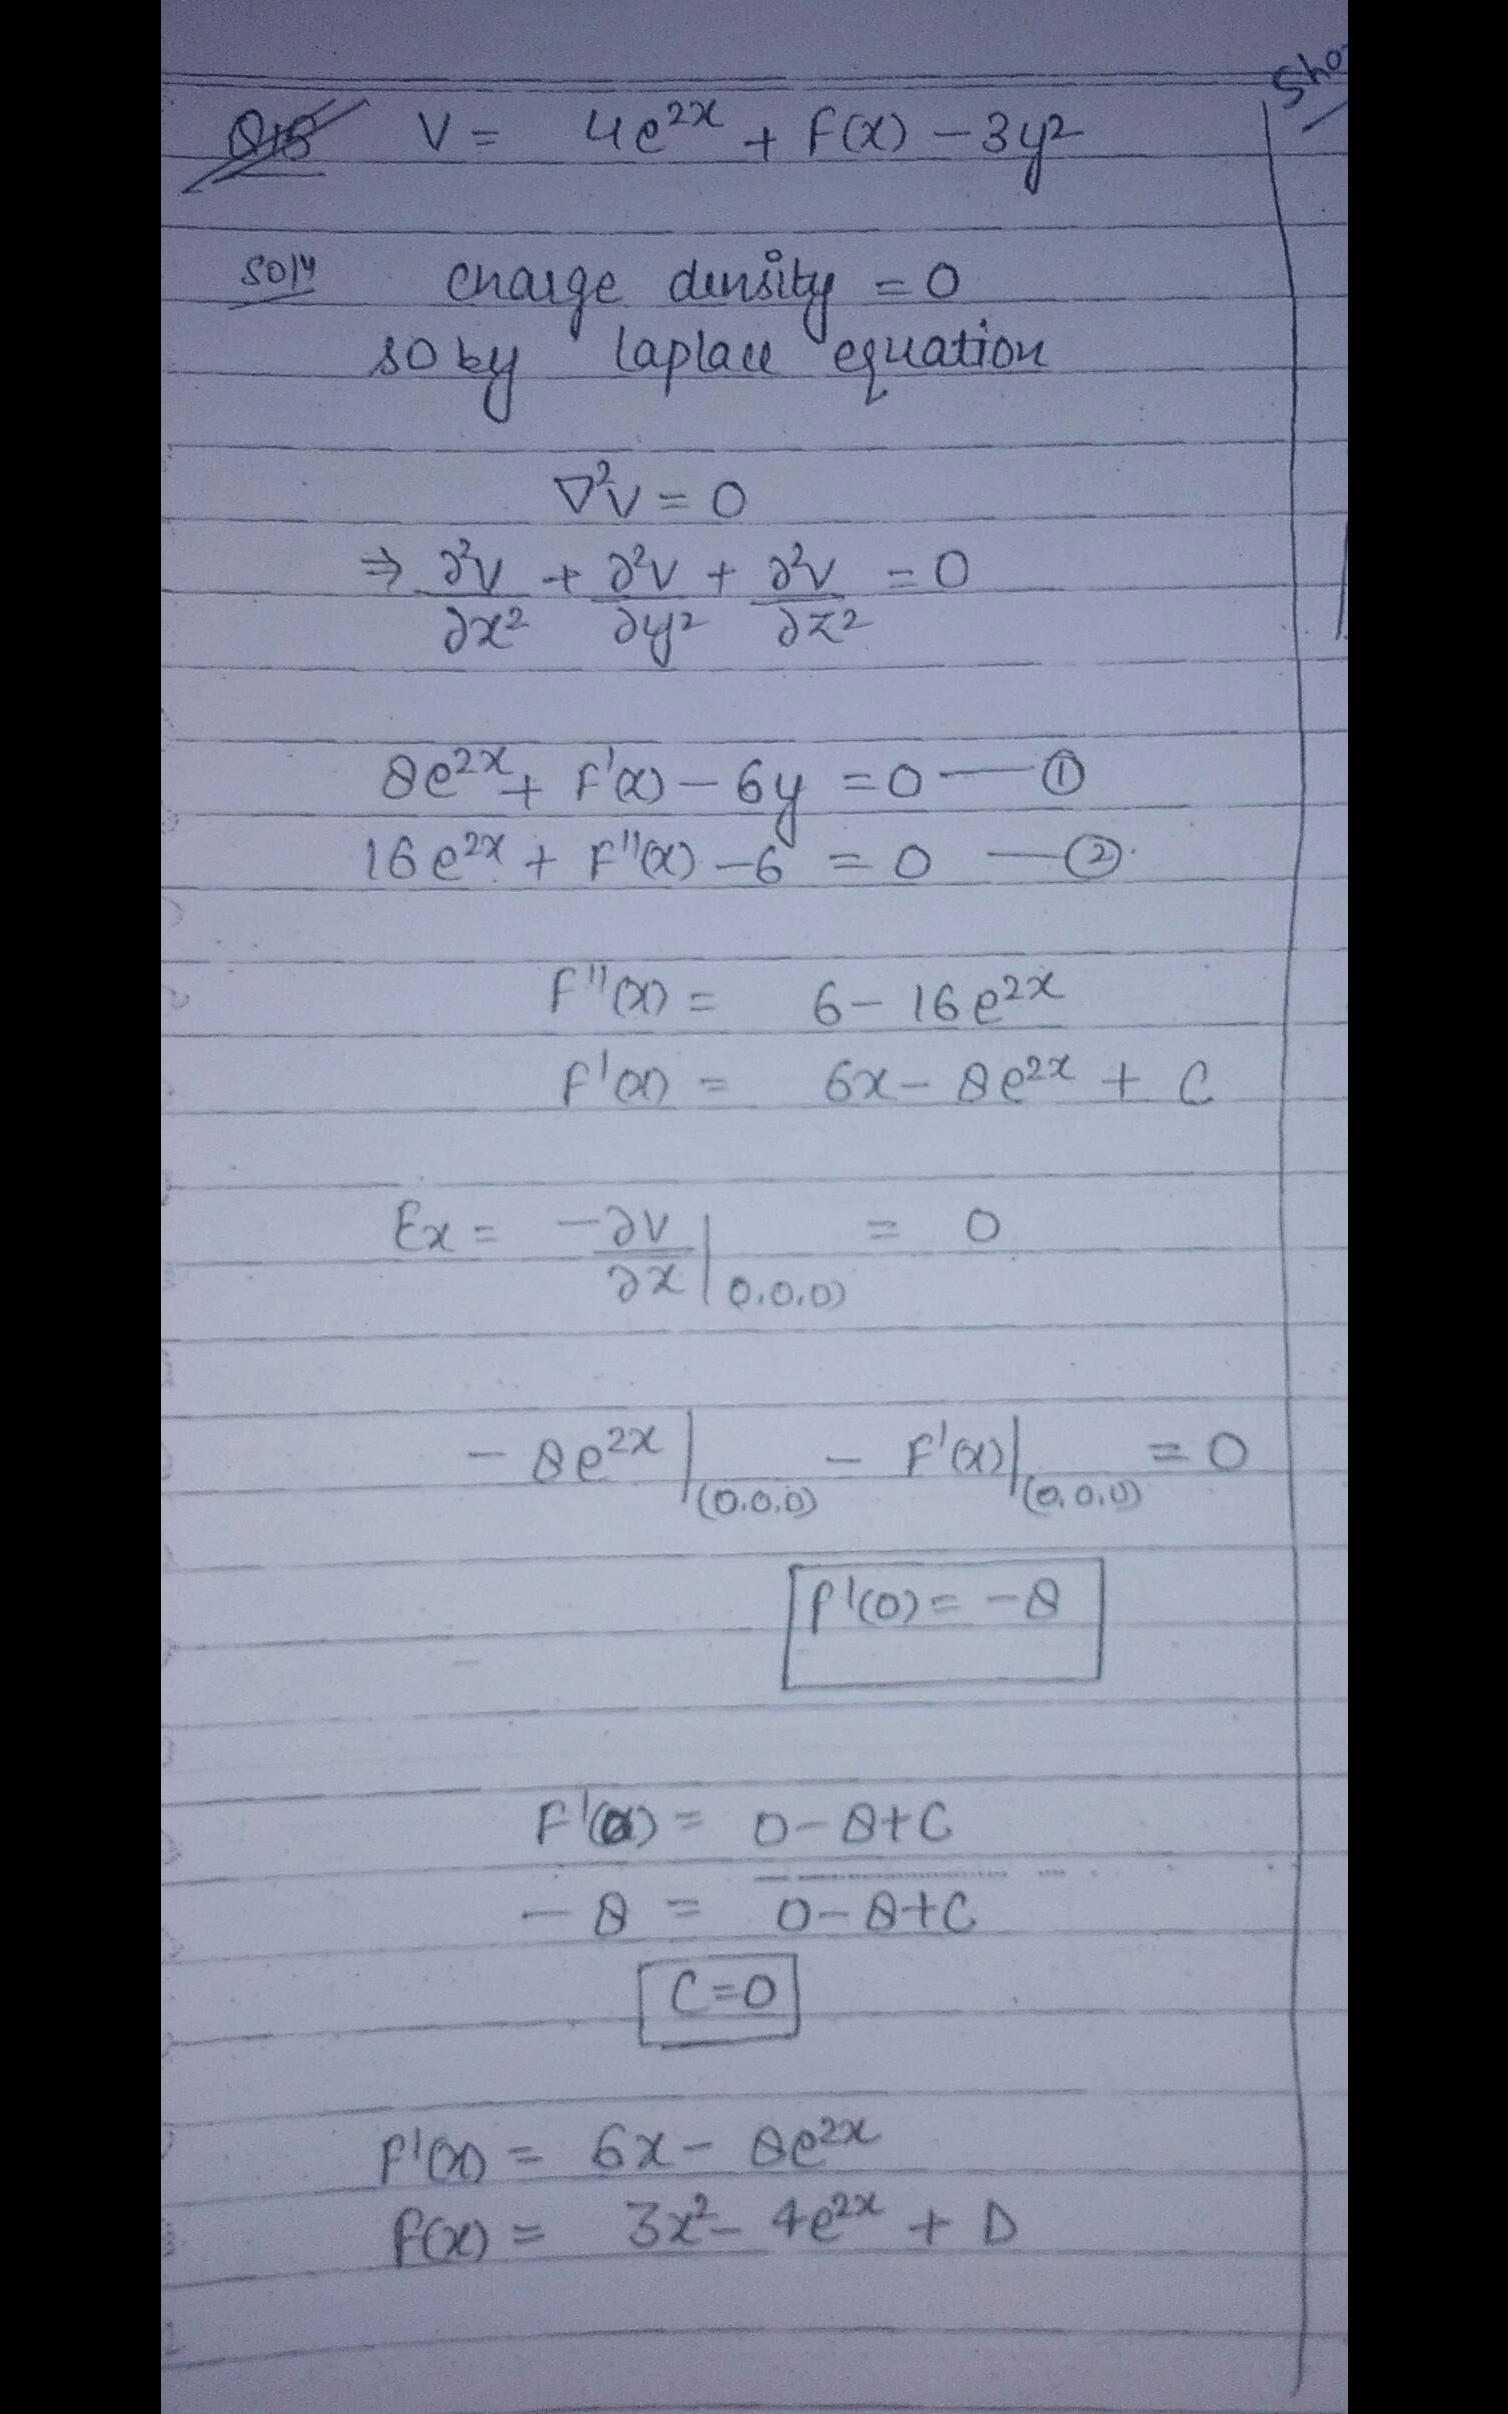 Sho
Q18 V = 4e²ˣ + f(x) - 3y²
Solⁿ charge density = 0
so by laplace equation
∇²V = 0
⇒ ∂²V/∂x² + ∂²V/∂y² + ∂²V/∂z² = 0
8e²ˣ + F'(x) - 6y = 0 — ①
16e²ˣ + F''(x) - 6 = 0 — ②
F''(x) = 6 - 16e²ˣ
F'(x) = 6x - 8e²ˣ + C
Ex = -∂V/∂x |0,0,0) = 0
- 8e²ˣ |(0,0,0) - F'(x) |(0,0,0) = 0
f'(0) = -8
F'(0) = 0 - 8 + C
- 8 = 0 - 8 + C
C = 0
F'(x) = 6x - 8e²ˣ
f(x) = 3x² - 4e²ˣ + D